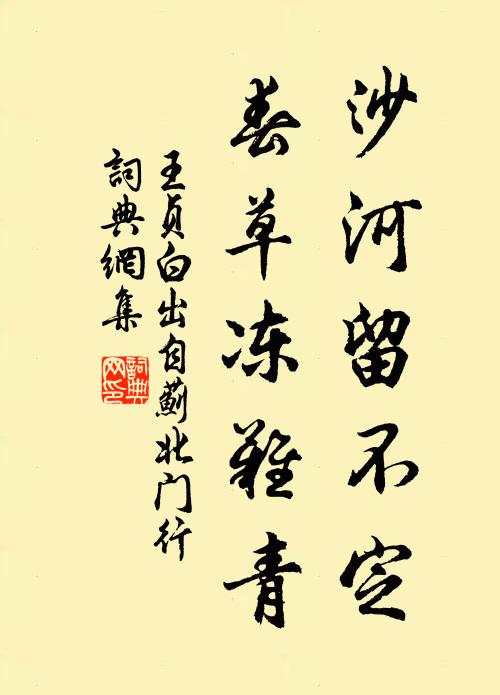 沙河留不定
春草冻难青
王贞白出自蓟北门行
詞典網集
詞典
网印